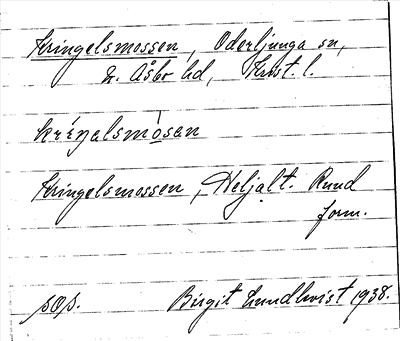 Kringelsmossen, Oderljunga sn,
N. Åsbo hd, Krist. l.
kriŋalsmosan
Kringelsmossen, Heljalt. Rund
form.
sop. Birgit Lundkvist 1938.